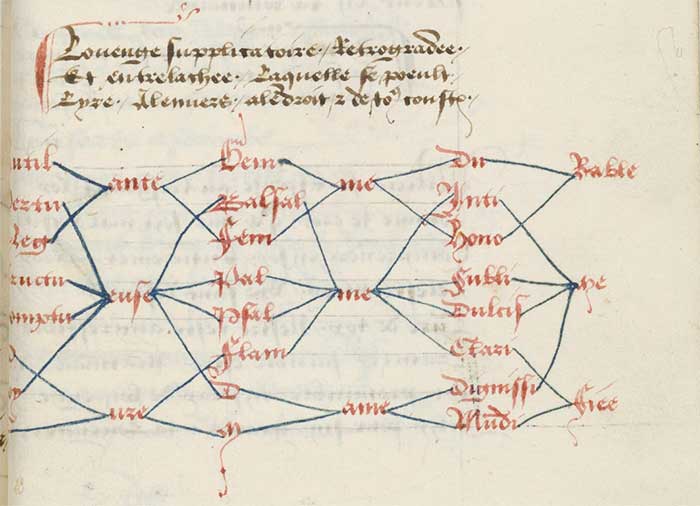 Louenge supplicatoire. Retrogradee.
Et entrelachee. Laquelle se poeult
Lyre. A lenuers. a lendroit ⁊ de to9 costez.
util
ante
Gem
me
Du
Rable
ertu
Balsal
Inti
Reg
Fem
Hono
ructu
euse
Pal
me
Subli
me
omptu
Psal
Dulcif
Flam
Clari
D
Dignissi
ure
ame
fiee
M
Mundi